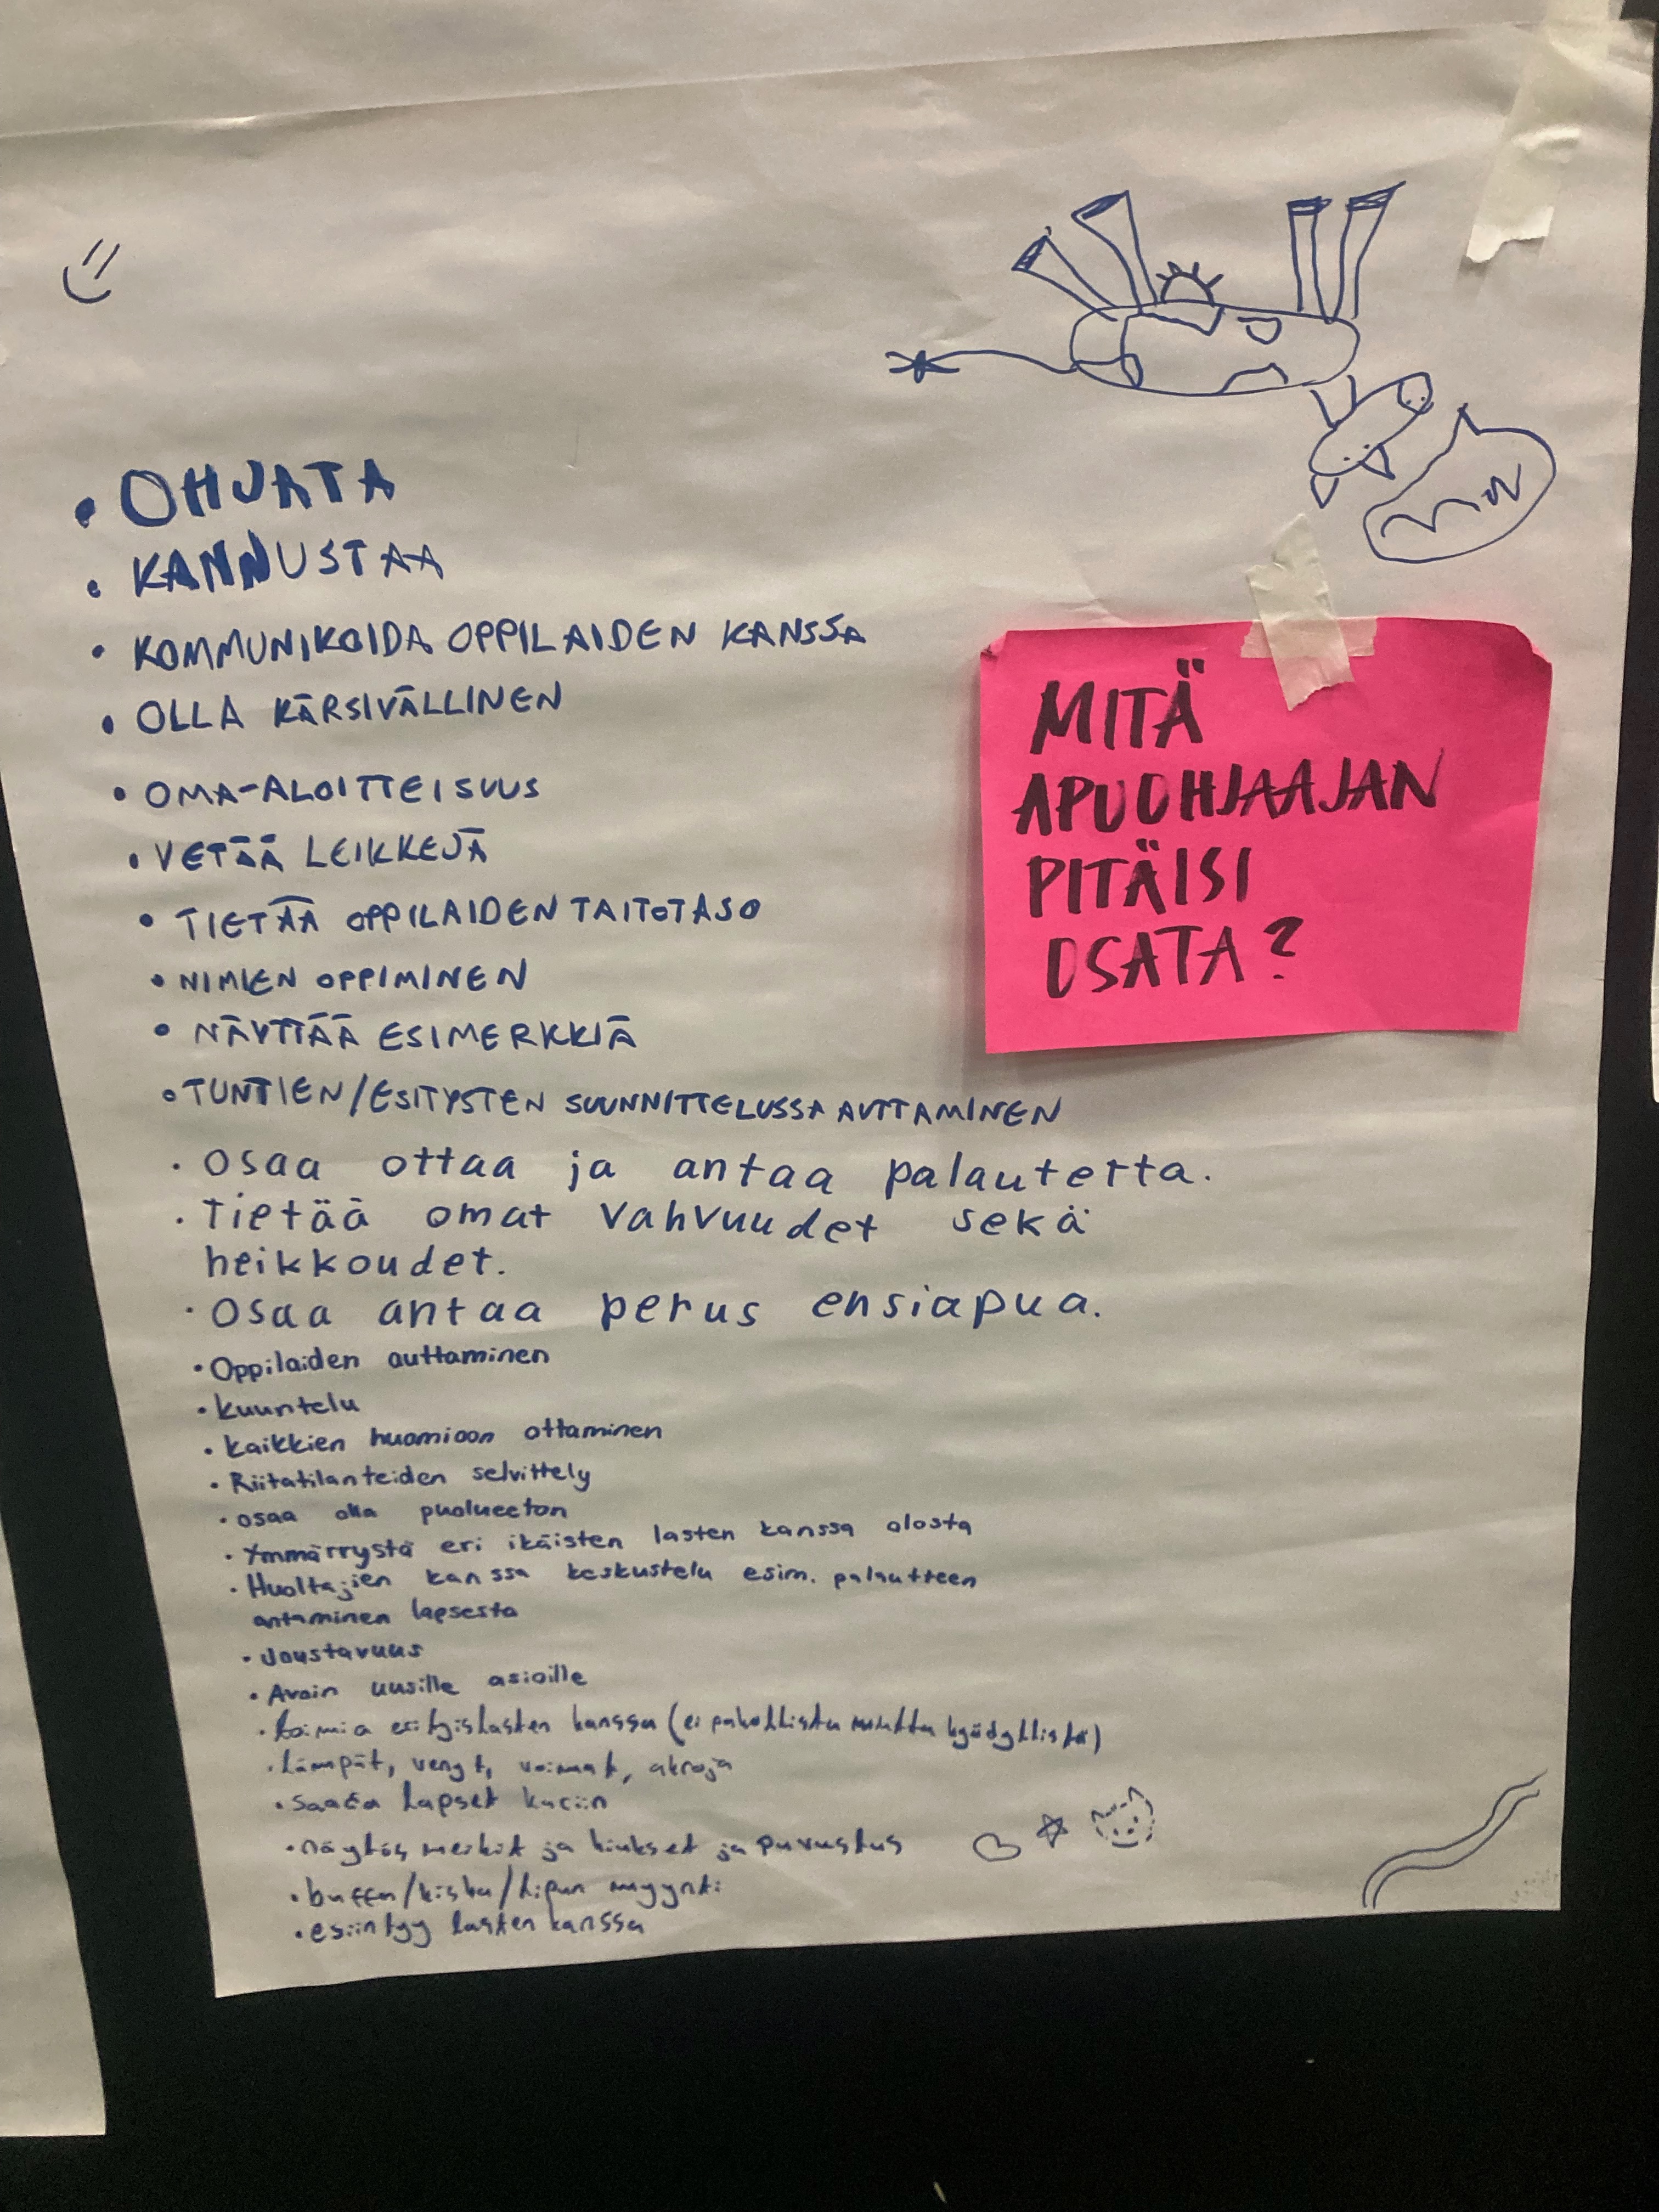 MUU
MITÄ
APUOHJAAJAN
PITÄISI
OSATA?
• OHJATA
• KANNUSTAA
• KOMMUNIKOIDA OPPILAIDEN KANSSA
• OLLA KÄRSIVÄLLINEN
• OMA-ALOITTEISUUS
• VETÄÄ LEIKKEJÄ
• TIETÄÄ OPPILAIDEN TAITOTASO
• NIMIEN OPPIMINEN
• NÄYTTÄÄ ESIMERKKIÄ
• TUNTIEN/ESITYSTEN SUUNNITTELUSSA AUTTAMINEN
• Osaa ottaa ja antaa palautetta.
• Tietää omat vahvuudet sekä
heikkoudet.
• Osaa antaa perus ensiapua.
• Oppilaiden auttaminen
• kuuntelu
• kaikkien huomioon ottaminen
• Riitatilanteiden selvittely
• osaa olla puolueeton
• Ymmärrystä eri ikäisten lasten kanssa olosta
• Huoltajien kanssa keskustelu esim. palautteen
antaminen lapsesta
• Joustavuus
• Avoin uusille asioille
• toimia erityislasten kanssa (ei pakollista mutta hyödyllistä)
• lämpät, venyt, voimat, akroja
• saada lapset kuriin
• näytös meikit ja hiukset ja puvustus
• buffa/kiska/lipun myynti
• esiintyy lasten kanssa